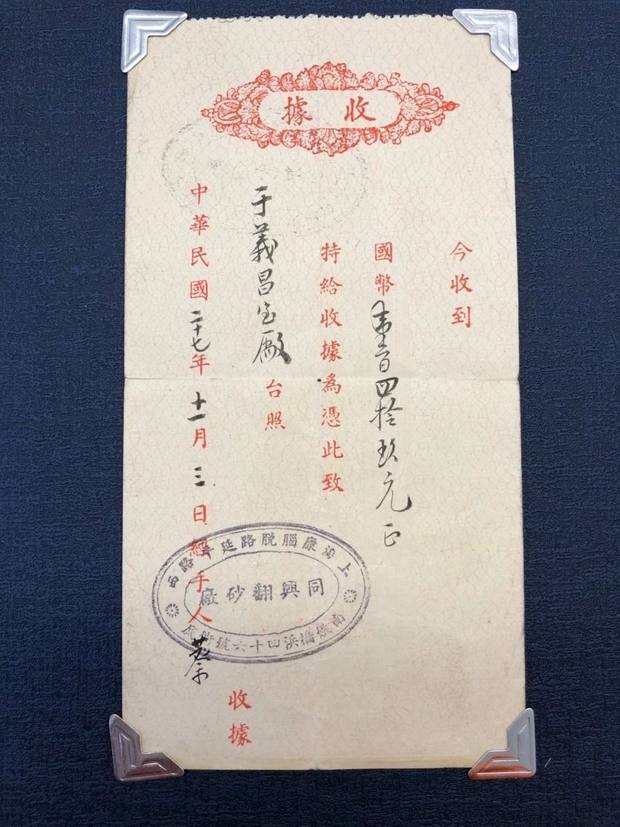 收據
今收到
國幣壹百四拾玖元正
特給收據爲憑此致
于義昌宝厰台照
中華民國二十七年十一月三日經手人蔡
收據
上海康腦脫路延平路西
同興翻砂廠
浜四十六號